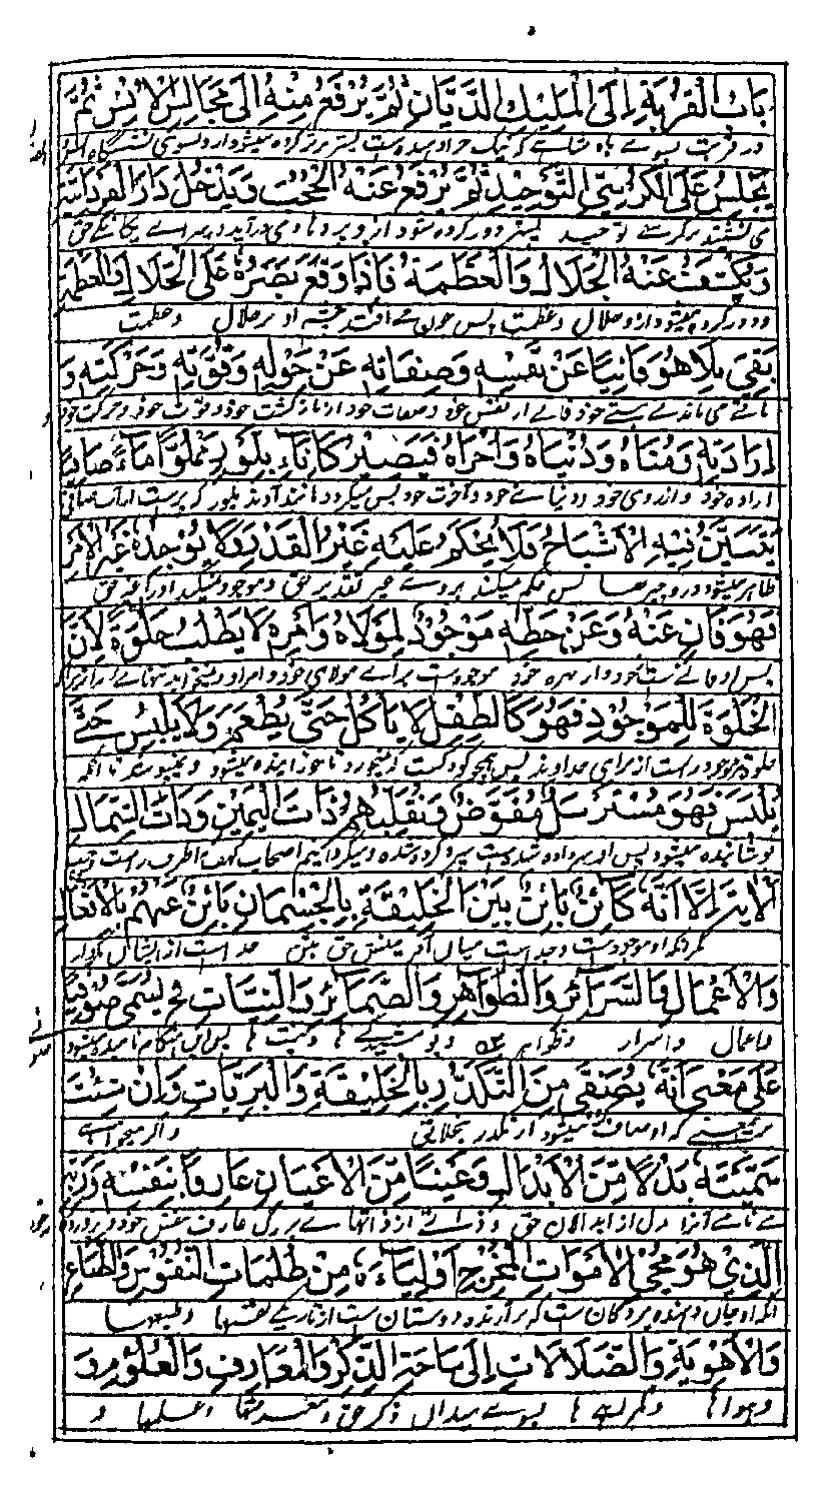 بَابُ الْقُرْبَةِ اِلَى الْمَلِيكِ الدَّيَّانِ ثُمَّ يُرْفَعُ مِنْهُ اِلَى مَجَالِسِ الْاُنْسِ ثُمَّ
در قربت بسوے بادشاہے کہ نیک جزا دہندہ است پستر برتر کردہ میشود ازو بسوی نشستگاہ
يَجْلِسُ عَلَى الْكُرْسِيِّ التَّوْحِيدِ ثُمَّ يُرْفَعُ عَنْهُ الْحُجُبُ وَيَدْخُلُ دَارَ الْفَرْدَانِيَّةِ
می نشیند بر کرسے توحید پستر دور کردہ شود ازو پردہا و می درآید در سراے یگانگے حق
وَيُكْشَفُ عَنْهُ الْجَلَالُ وَالْعَظَمَةُ فَاِذَا وَقَعَ بَصَرُهُ عَلَى الْجَلَالِ وَالْعَظَمَةِ
و دور کردہ میشود ازو جلال و عظمت پس چون مے افتد او بر جلال و عظمت
بَقِيَ بِلَا هُوَ فَانِيًا عَنْ نَفْسِهِ وَصِفَاتِهِ عَنْ حَوْلِهِ وَقُوَّتِهِ وَحَرَكَتِهِ وَ
باقے می ماند بے ہستے خود فانے از نفس خود و صفات خود از بازگشت خود و قوت خود و حرکت خود و
اِرَادَتِهِ وَمُنَاهُ وَدُنْيَاهُ وَاُخْرَاهُ فَيَصِيرُ كَاِنَاءِ بِلَّوْرٍ مَمْلُوٍّ مَاءً صَافِيًا
ارادہ خود و آرزوی خود و دنیاے خود و آخرت خود پس میگردد مانند آوند بلور کہ پرست از آب صافی
يَتَبَيَّنُ فِيهِ الْاَشْبَاحُ فَلَا يَحْكُمُ عَلَيْهِ غَيْرُ الْقَدَرِ وَلَا يُوْجِدُهُ غَيْرُ الْاَمْرِ
ظاہر میشود درو پس حکم میکند بروے غیر تقدیر حق و موجود میکند او را غیر حق
فَهُوَ فَانٍ عَنْهُ وَعَنْ حَظِّهِ مَوْجُوْدٌ لِمَوْلَاهُ وَاَمْرِهِ لَا يَطْلُبُ خَلْوَةً لِاَنَّ
پس او فانے ست از خود و از بہرہ خود موجودست براے مولای خود و امر او نمیخواہد تنہائے را زیرا کہ
الْخَلْوَةَ لِلْمَوْجُوْدِ فَهُوَ كَالطِّفْلِ لَا يَاْكُلُ حَتّٰى يُطْعَمَ وَلَا يَلْبَسُ حَتّٰى
خلوة موجود راست پس ہمچو کودک ست کہ نمیخورد تا خورانیدہ میشود و نمیپوشد تا آنکہ
يُلْبَسَ فَهُوَ مُسْتَرْسَلٌ مُفَوَّضٌ وَنُقَلِّبُهُمْ ذَاتَ الْيَمِيْنِ وَذَاتَ الشِّمَالِ
پوشانیدہ میشود پس او سر دادہ شدہ است سپرد کردہ شدہ و میگردانیم اصحاب کہف را طرف راست
اِلَّا اَنَّهُ كَائِنٌ بَائِنٌ بَيْنَ الْخَلِيْقَةِ بِالْجُسْمَانِ بَائِنٌ عَنْهُمْ بِالْاَفْعَالِ
مگر آنکہ او موجودست و جداست میان آفرینش حق جداست از ایشان
وَالْاَعْمَالِ وَالسَّرَائِرِ وَالظَّوَاهِرِ وَالضَّمَائِرِ وَالنِّيَّاتِ فَحِ يُسَمّٰى صُوْفِيًّا
و اعمال و اسرار و ظواہر و پوشیدگے ہا و نیت ہا پس این ہنگام نامیدہ میشود
عَلٰى مَعْنٰى اَنَّهُ يُصَفّٰى مِنَ التَّكَدُّرِ بِالْخَلِيْقَةِ وَالْبَرِيَّاتِ وَاِنْ شِئْتَ
بر معنی کہ او صاف میشود از تکدر بخلایق و اگر میخواہی
سَمَّيْتَهُ بَدَلًا مِنَ الْاَبْدَالِ وَعَيْنًا مِنَ الْاَعْيَانِ عَارِفًا بِنَفْسِهِ وَرَبِّهِ
مے نامے آنرا بدل از ابدالان حق و ذاتے از ذاتہاے بزرگ عارف بنفس خود و پروردگار خود
الَّذِيْ هُوَ مُحْيِ الْاَمْوَاتِ الْمُخْرِجُ اَوْلِيَاءَهُ مِنْ ظُلُمَاتِ النُّفُوْسِ وَالطَّبَاعِ
آنکہ او جان دہندہ مردگان ست کہ برآرندہ دوستان ست از تاریکے نفسہا و طبعہا
وَالْاَهْوِيَةِ وَالضَّلَالَاتِ اِلٰى سَاحَةِ الذِّكْرِ وَالْمَعَارِفِ وَالْعُلُوْمِ وَ
و ہواہا و گمراہے ہا بسوے میدان ذکر حق و معرفتہا و علمہا و